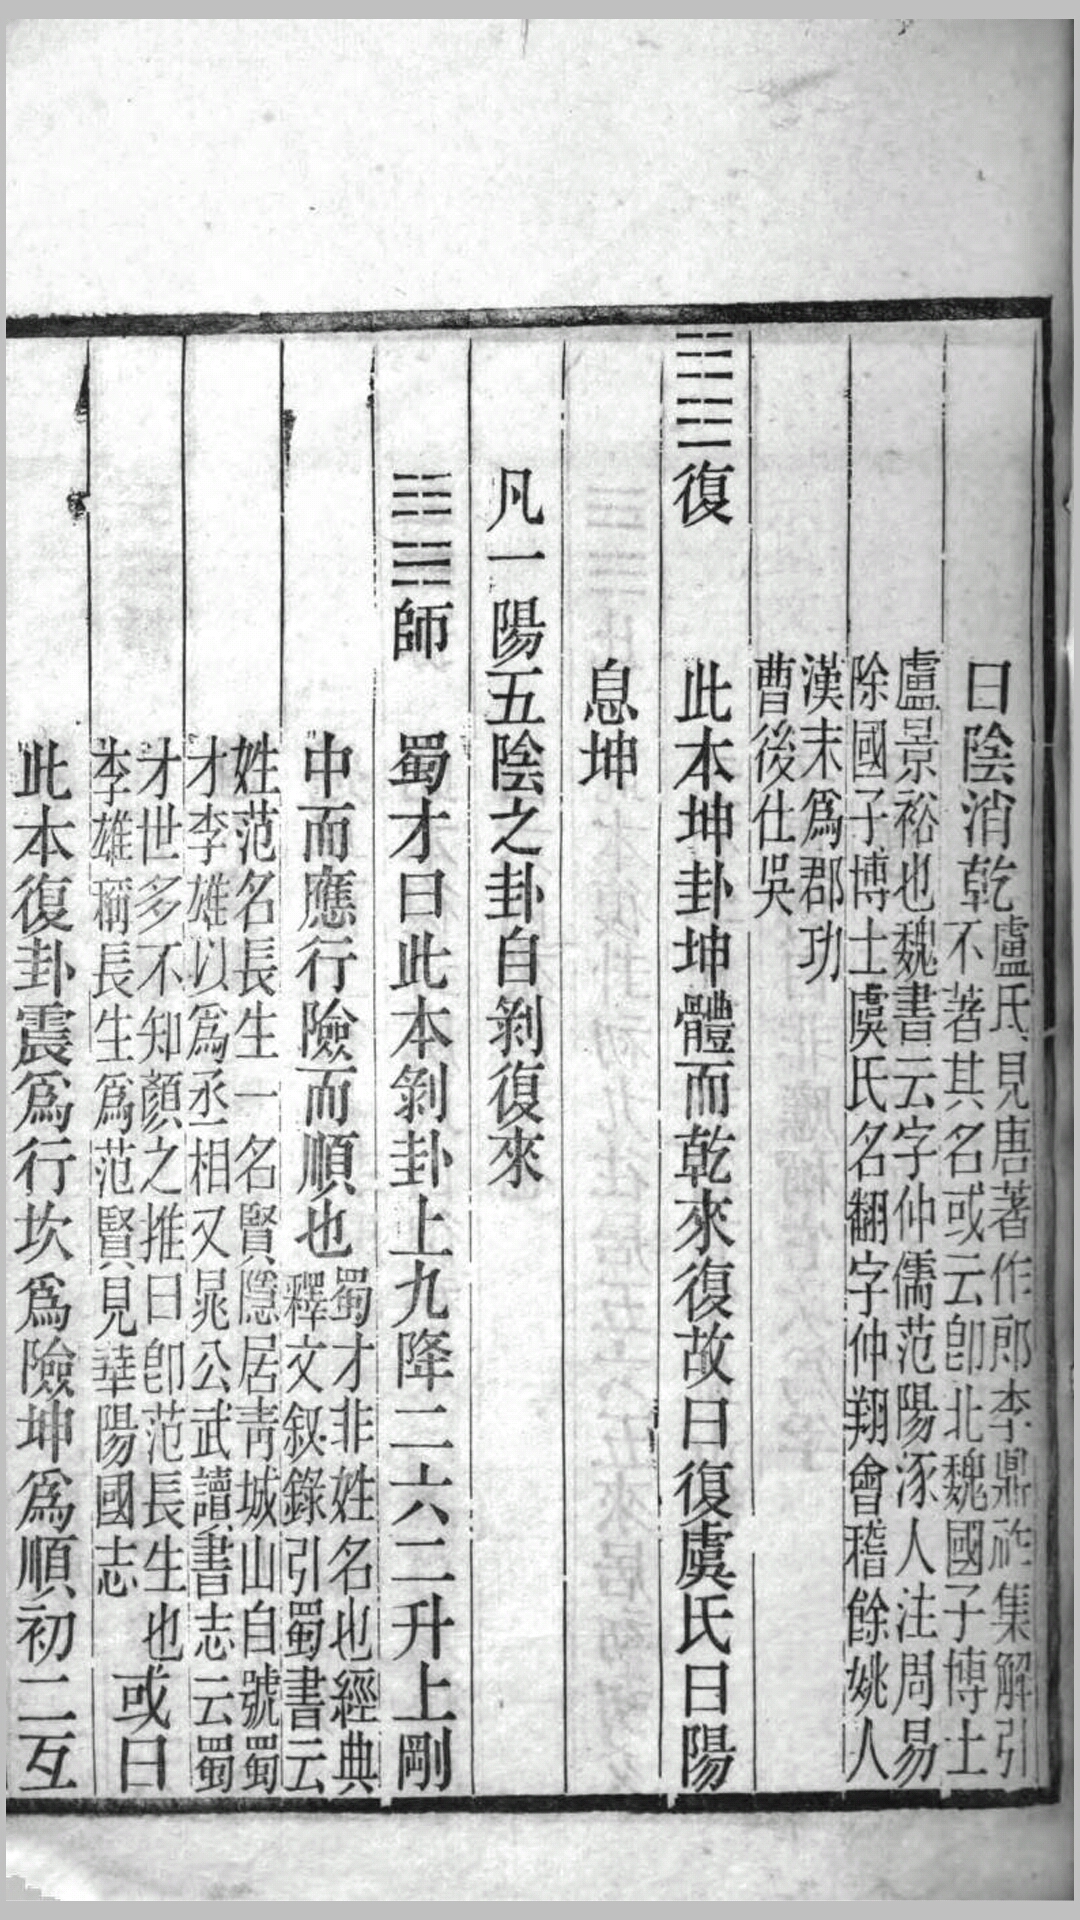 曰陰消乾盧氏見唐著作郎李鼎祚集解引
不著其名或云卽北魏國子博士
盧景裕也魏書云字仲儒范陽涿人注周易
除國子博士虞氏名翻字仲翔會稽餘姚人
漢末爲郡功
曹後仕吳
䷗復 此本坤卦坤體而乾來復故曰復虞氏曰陽
息坤
凡一陽五陰之卦自剝復來
䷆師 蜀才曰此本剝卦上九降二六二升上剛
中而應行險而順也蜀才非姓名也經典
釋文叙錄引蜀書云
姓范名長生一名賢隱居靑城山自號蜀
才李雄以爲丞相又晁公武讀書志云蜀
才世多不知顏之推曰卽范長生也
李雄稱長生爲范賢見華陽國志
或曰
此本復卦震爲行坎爲險坤爲順初二互